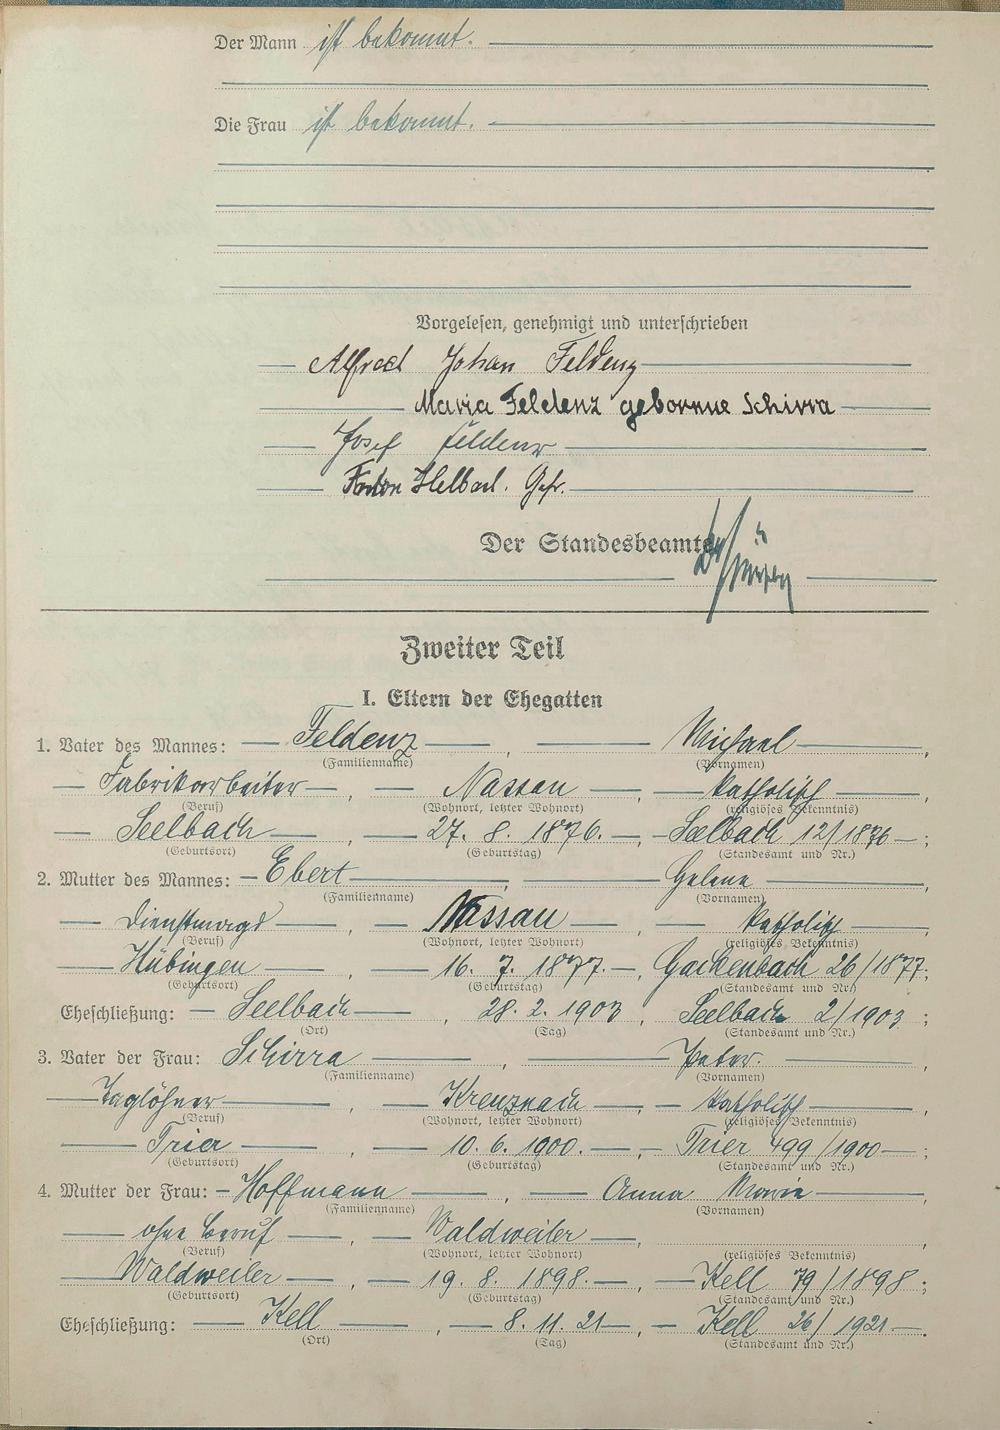 Der Mann ist bekannt.
Die Frau ist bekannt.
Vorgelesen, genehmigt und unterschrieben
Alfred Johan Feldenz
Maria Feldenz geborene Schirra
Josef Feldenz
Gefr.
Der Standesbeamte
Zweiter Teil
I. Eltern der Ehegatten
1. Vater des Mannes: Feldenz, Michael,
(Familienname) (Vornamen)
Fabrikarbeiter, Nassau, katholisch,
(Beruf) (Wohnort, letzter Wohnort) (religiöses Bekenntnis)
Seelbach, 27. 8. 1876., Seelbach 12/1876;
(Geburtsort) (Geburtstag) (Standesamt und Nr.)
2. Mutter des Mannes: Ebert, Helene,
(Familienname) (Vornamen)
Dienstmagd, Nassau, katholisch,
(Beruf) (Wohnort, letzter Wohnort) (religiöses Bekenntnis)
Hübingen, 16. 7. 1877., Gackenbach 26/1877;
(Geburtsort) (Geburtstag) (Standesamt und Nr.)
Eheschließung: Seelbach, 28. 2. 1903, Seelbach 2/1903;
(Ort) (Tag) (Standesamt und Nr.)
3. Vater der Frau: Schirra, Peter.,
(Familienname) (Vornamen)
Taglöhner, Kreuznach, katholisch,
(Beruf) (Wohnort, letzter Wohnort) (religiöses Bekenntnis)
Trier, 10. 6. 1900., Trier 499/1900;
(Geburtsort) (Geburtstag) (Standesamt und Nr.)
4. Mutter der Frau: Hoffmann, Anna Maria,
(Familienname) (Vornamen)
ohne Beruf, Waldweiler,
(Beruf) (Wohnort, letzter Wohnort) (religiöses Bekenntnis)
Waldweiler, 19. 8. 1898., Kell 79/1898;
(Geburtsort) (Geburtstag) (Standesamt und Nr.)
Eheschließung: Kell, 8. 11. 21, Kell 26/1921.
(Ort) (Tag) (Standesamt und Nr.)